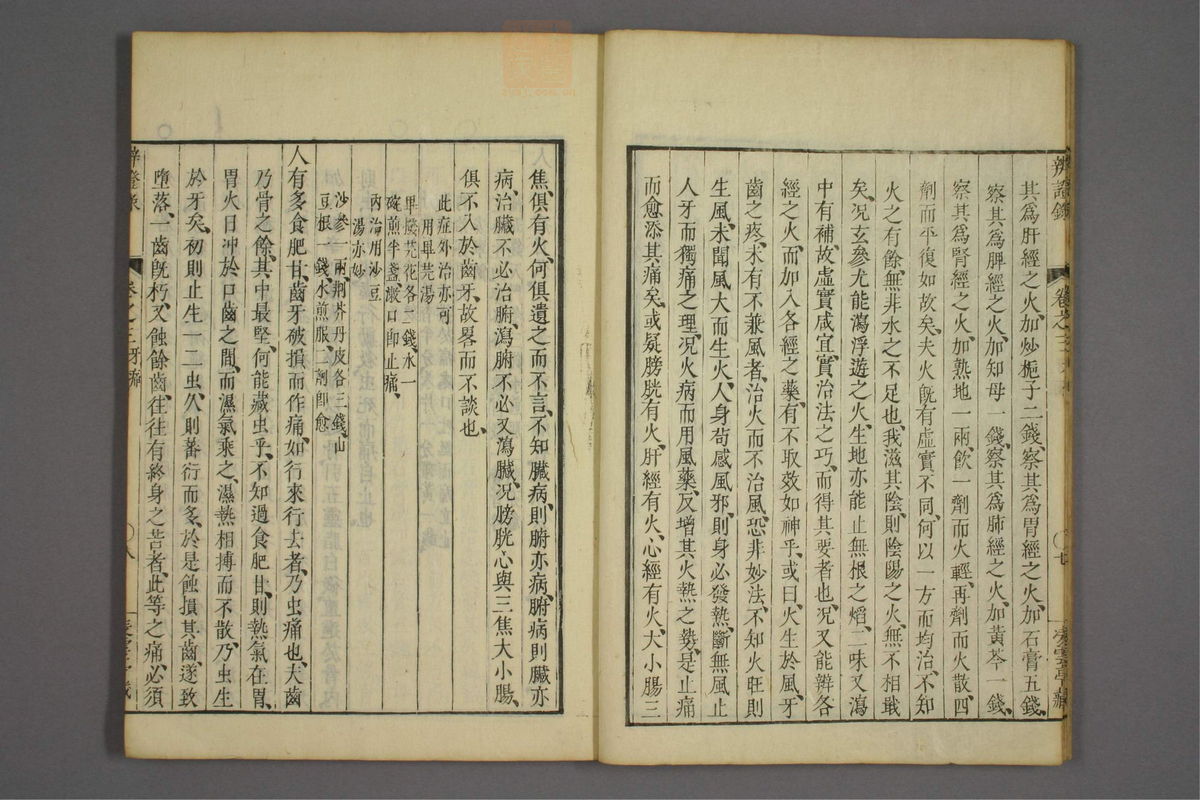 辨證錄 卷之三 牙痛 七
其爲肝經之火、加炒梔子二錢、察其爲胃經之火、加石膏五錢、
察其爲脾經之火、加知母一錢、察其爲肺經之火、加黃芩一錢、
察其爲腎經之火、加熟地一兩、飲一劑而火輕、再劑而火散、四
劑而平復如故矣、夫火旣有虛實不同、何以一方而均治、不知
火之有餘、無非水之不足也、我滋其陰、則陰陽之火、無不相戢
矣、况玄參尤能瀉浮遊之火、生地亦能止無根之熖、二味又瀉
中有補、故虛實咸宜、實治法之巧、而得其要者也、况又能辨各
經之火、而加入各經之藥、有不取效如神乎、或曰、火生於風、牙
齒之疼、未有不兼風者、治火而不治風、恐非妙法、不知火旺則
生風、未聞風大而生火、人身苟感風邪、則身必發熱、斷無風止
人牙而獨痛之理、况火病而用風藥、反增其火熱之勢、是止痛
而愈添其痛矣、或疑膀胱有火、肝經有火、心經有火、大小腸三
焦、俱有火、何俱遺之而不言、不知臟病、則腑亦病、腑病、則臟亦
病、治臟不必治腑、瀉腑不必又瀉臟、况膀胱心與三焦大小腸、
俱不入於齒牙、故畧而不談也、
此症外治亦可
用蓽芫湯
蓽茇芫花各二錢、水一
碗煎半盞、漱口即止痛、
內治用沙豆
湯亦妙
沙參一兩荆芥丹皮各三錢、山
豆根一錢、水煎服、二劑即愈
人有多食肥甘、齒牙破損而作痛、如行來行去者、乃虫痛也、夫齒
乃骨之餘、其中最堅、何能藏虫乎、不知過食肥甘、則熱氣在胃、
胃火日冲於口齒之間、而濕氣乘之、濕熱相搏而不散、乃虫生
於牙矣、初則止生一二虫、久則蕃衍而多、於是蝕損其齒、遂致
墮落、一齒旣朽、又蝕餘齒、往往有終身之苦者、此等之痛、必須
卷之三 牙痛 八